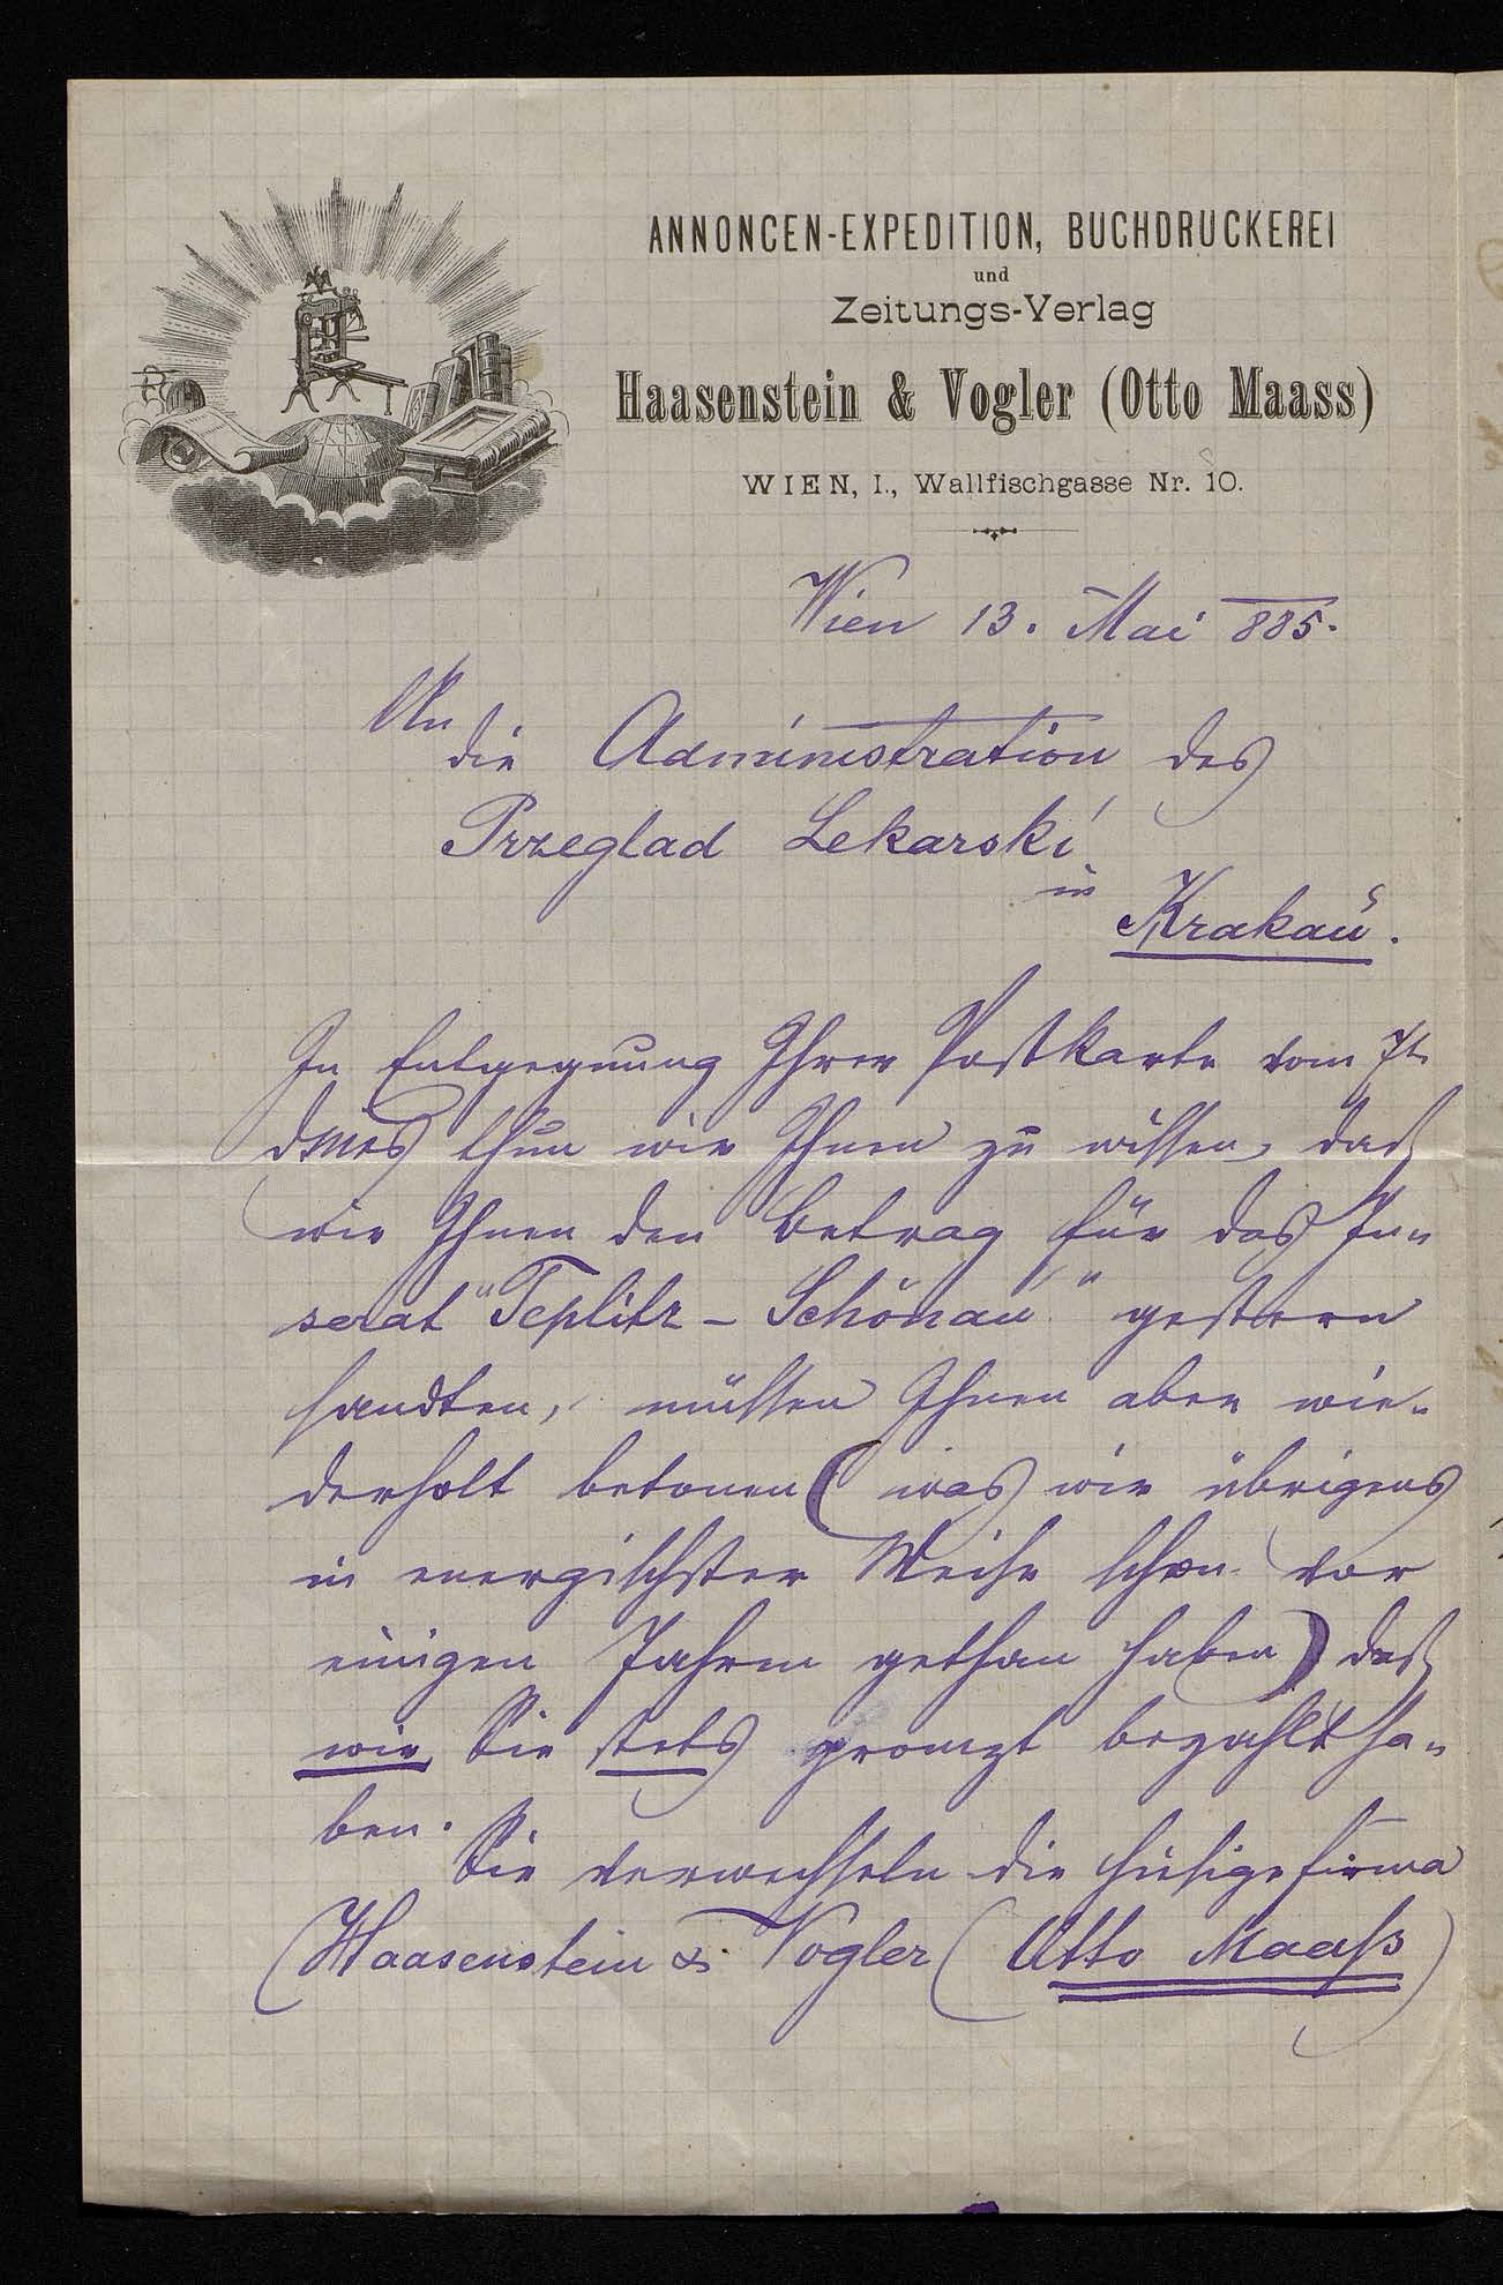 ANNONCEN-EXPEDITION, BUCHDRUCKEREI
und
Zeitungs-Verlag
Haasenstein & Vogler (Otto Maass)
WIEN, I., Wallfischgasse Nr. 10.
Wien 13. Mai 885.
An
die Administration des
Przeglad Lekarski
in
Krakau.
In Entgegnung Ihrer Postkarte vom 7t
dmes thun wir Ihnen zu wissen, daß
wir Ihnen den Betrag für das In=
serat "Teplitz - Schönau" gestern
sandten, müssen Ihnen aber wie=
derholt betonen (was wir übrigens
in energischster Weise schon vor
einigen Jahren gethan haben) daß
wir Sie stets prompt bezahlt ha=
ben.
Sie verwechseln die hiesige Firma
Haasenstein & Vogler (Otto Maaß)